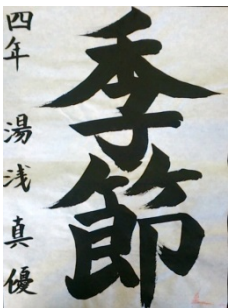 季節
四年 湯浅真優